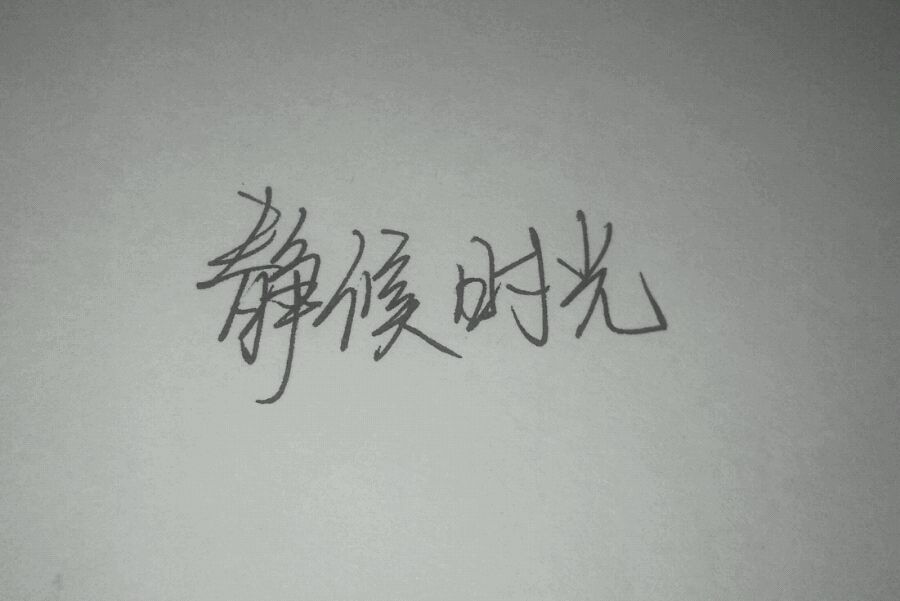 静候时光